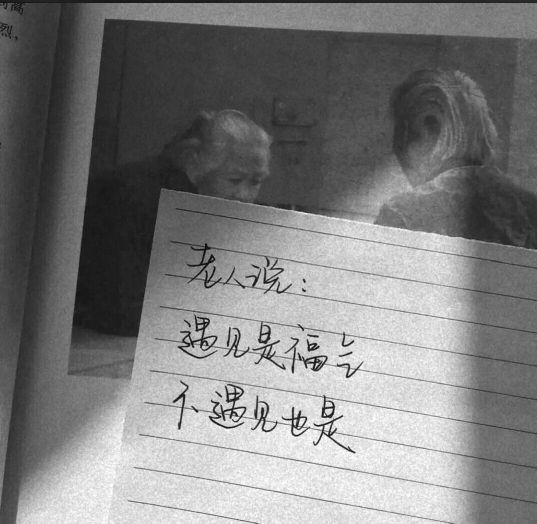 烈，
老人说：
遇见是福气
不遇见也是